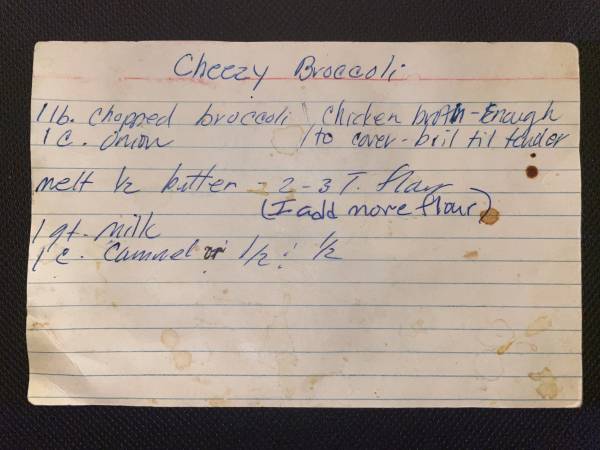 Cheezy Broccoli
1 lb. chopped broccoli \ chicken broth - Enough
1 c. onion / to cover - boil til tender
melt 1/2 butter - 2 - 3 T. flour
(I add more flour)
1 qt. milk
1 c. or 1/2 : 1/2